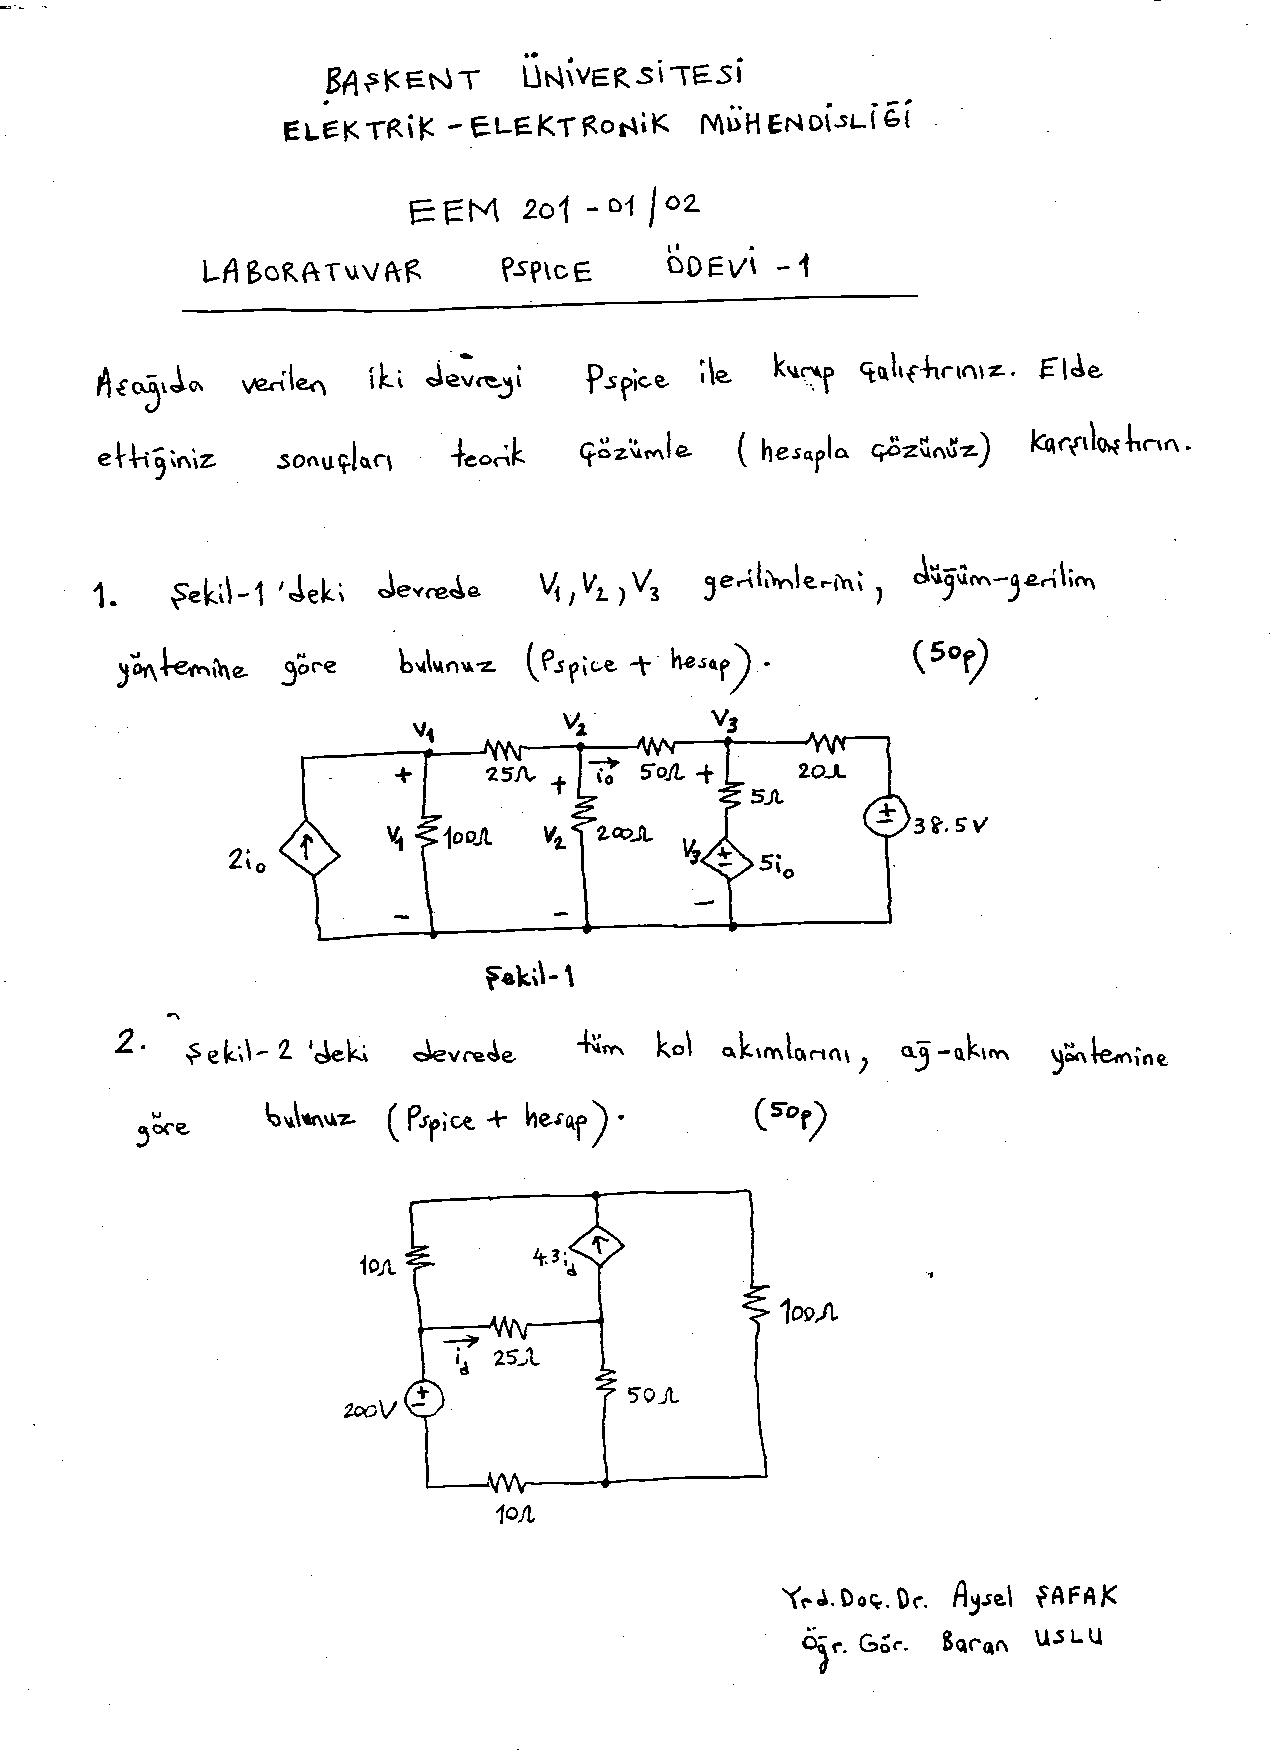 BAŞKENT ÜNİVERSİTESİ
ELEKTRİK-ELEKTRONİK MÜHENDİSLİĞİ
EEM 201-01/02
LABORATUVAR PSPICE ÖDEVİ-1
Aşağıda verilen iki devreyi Pspice ile kurup çalıştırınız. Elde
ettiğiniz sonuçları teorik çözümle (hesapla çözünüz) karşılaştırın.
1. Şekil-1'deki devrede V1, V2, V3 gerilimlerini, düğüm-gerilim
yöntemine göre bulunuz (Pspice + hesap). (50p)
V1 V2 V3
+ 25Ω + i0 50Ω + 20Ω
5Ω
2i0 V1 100Ω V2 200Ω V3 + - 5i0 + - 38.5V
- - -
Şekil-1
2. Şekil-2'deki devrede tüm kol akımlarını, ağ-akım yöntemine
göre bulunuz (Pspice + hesap). (50p)
10Ω 4.3id
100Ω
id 25Ω
200V + - 50Ω
10Ω
Yrd.Doç.Dr. Aysel ŞAFAK
Öğr. Gör. Baran USLU